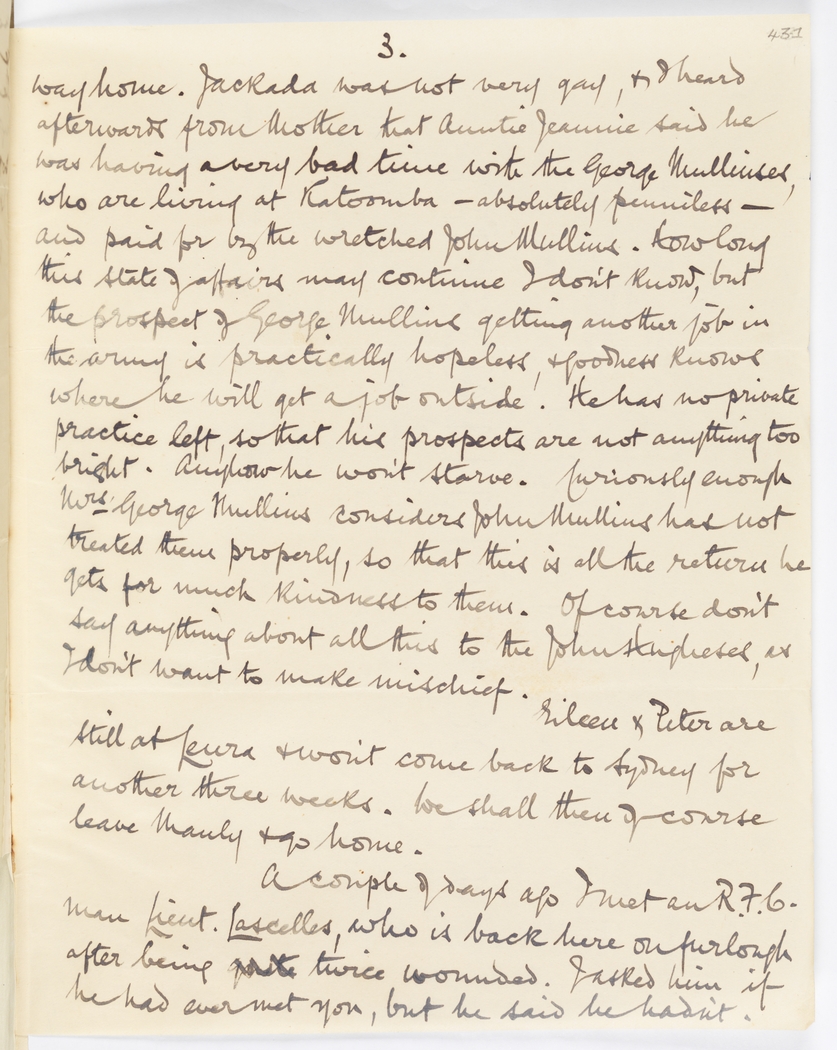 431
3.
way home. Jackada was not very gay, & I heard
afterwards from Mother that Auntie Jeannie said he
was having a very bad time with the George Mullinses,
who are living at Katoomba – absolutely penniless –
and paid for by the wretched John Mullins. How long
this state of affairs may continue I don't know, but
the prospect of George Mullins getting another job in
the army is practically hopeless, & goodness knows
where he will get a job outside! He has no private
practice left, so that his prospects are not anything too
bright. Anyhow he won't starve. Curiously enough
Mrs. George Mullins considers John Mullins has not
treated them properly, so that this is all the return he
gets for much kindness to them. Of course don't
say anything about all this to the John Hugheses, as
I don't want to make mischief.
Eileen & Peter are
still at Leura & won't come back to Sydney for
another three weeks. We shall then of course
leave Manly & go home.
A couple of days ago I met an R.F.C.
man Lieut. Lascelles, who is back here on furlough
after being twice wounded. I asked him if
he had ever met you, but he said he hadn't.